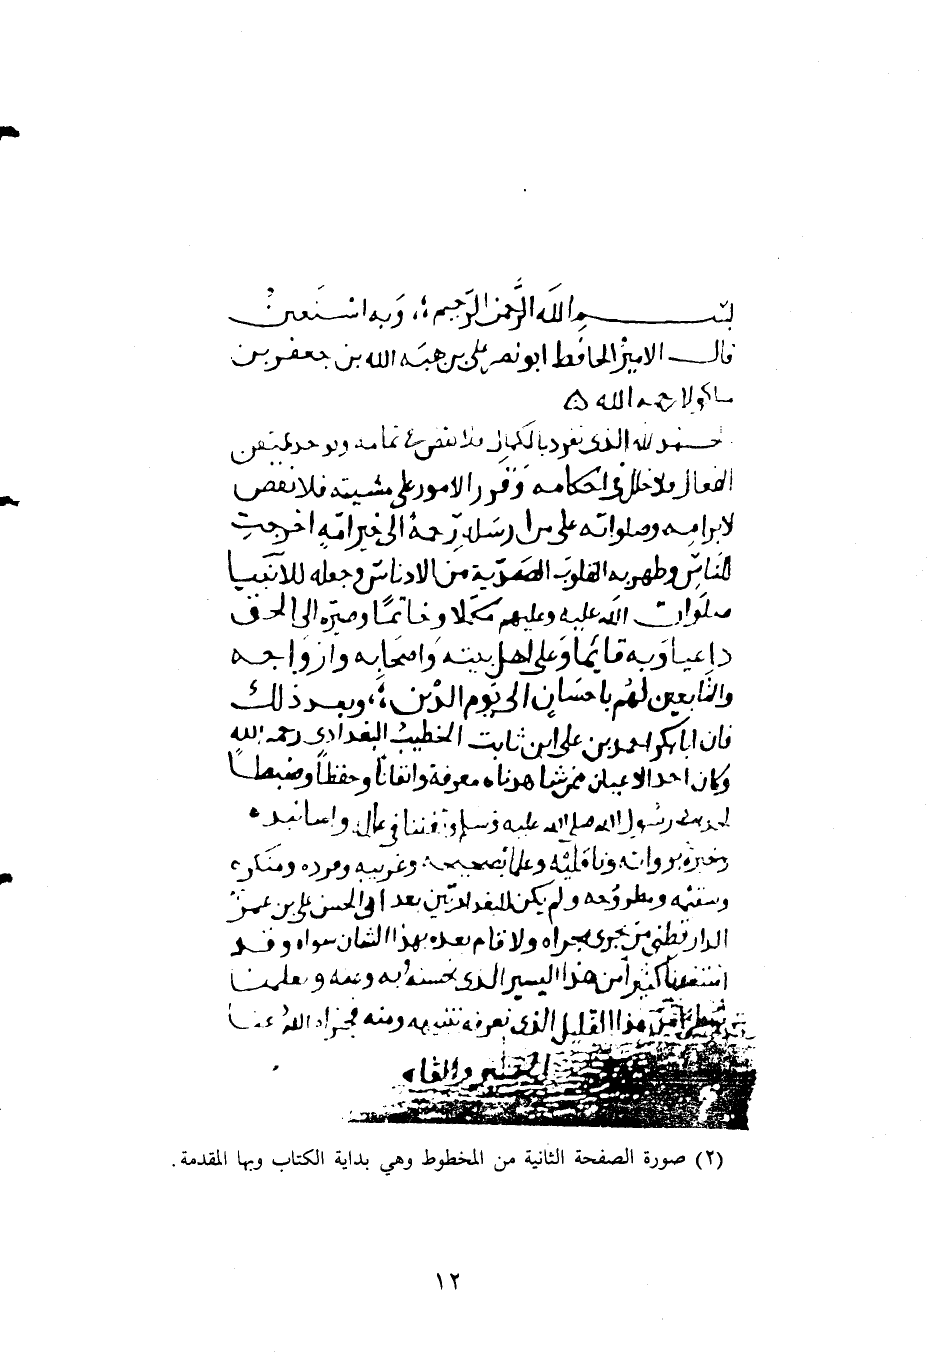 بسم الله الرحمن الرحيم وبه استعين
قال الامير الحافظ ابو نصر علي بن هبه الله بن جعفر بن
ماكولا رحمه الله
لله الذي تفرد بالكمال فلا نقص في تمامه وتوحد
الفعال فلا خلل في احكامه وقرر الامور على مشيته فلا نقص
لابرامه وصلواته على من ارسله رحمة الى خير امة اخرجت
للناس وطهر به القلوب من الادناس وجعله للانبيا
صلوات الله عليه وعليهم مكملا وخاتما وصيره الى الحق
داعيا وبه قايما وعلى اهل بيته واصحابه وازواجه
والتابعين لهم باحسان الى يوم الدين وبعد ذلك
فان ابا بكر احمد بن علي ابن ثابت الخطيب البغدادي رحمه الله
وكان احد الاعيان ممن شاهدناه معرفة واتقانا وحفظا وضبطا
لحديث رسول الله صلى الله عليه وسلم وتفننا في علله واسانيده
وخبرة برواته وناقليه وعلما بصحيحه وغريبه وفرده ومنكره
وسقيمه ومطروحه ولم يكن للبغداديين بعد ابي الحسن علي بن عمر
الدارقطني من يجرى مجراه ولا قام بعده بهذا الشان سواه وقد
استفدنا كثيرا من هذا اليسير الذي نحسنه به وعنه وتعلمنا
من هذا القليل الذي نعرفه بتنبيهه ومنه فجزاه الله عنا
الخير ولقاه
(٢) صورة الصفحة الثانية من المخطوط وهي بداية الكتاب وبها المقدمة.
١٢